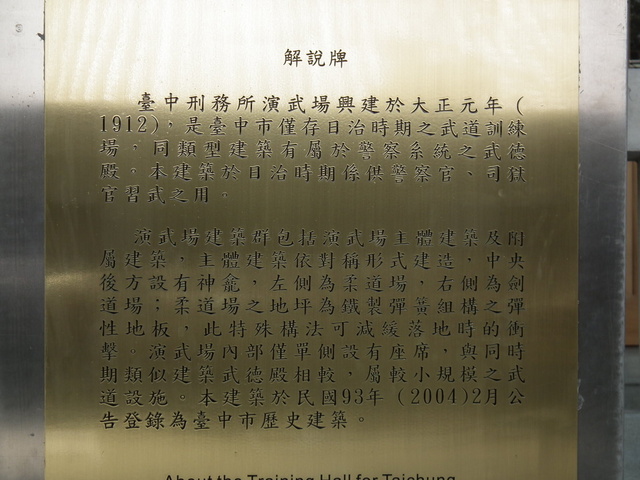 解說牌
臺中刑務所演武場興建於大正元年(
1912)，是臺中市僅存日治時期之武道訓練
場，同類型建築有屬於警察系統之武德
殿，本建築於日治時期係供警察官、司獄
官習武之用。
演武場建築群包括演武場主體建築及附
屬建築，主體建築依對稱形式建造，中央
後方設有神龕，左側為柔道場，右側為劍
道場；柔道場之地坪為鐵製彈簧組構之彈
性地板，此特殊構法可減緩落地時的衝
擊。演武場內部僅單側設有座席，與同時
期類似建築武德殿相較，屬較小規模之武
道設施。本建築於民國93年 (2004)2月公
告登錄為臺中市歷史建築。
About the Training Hall for Taichung